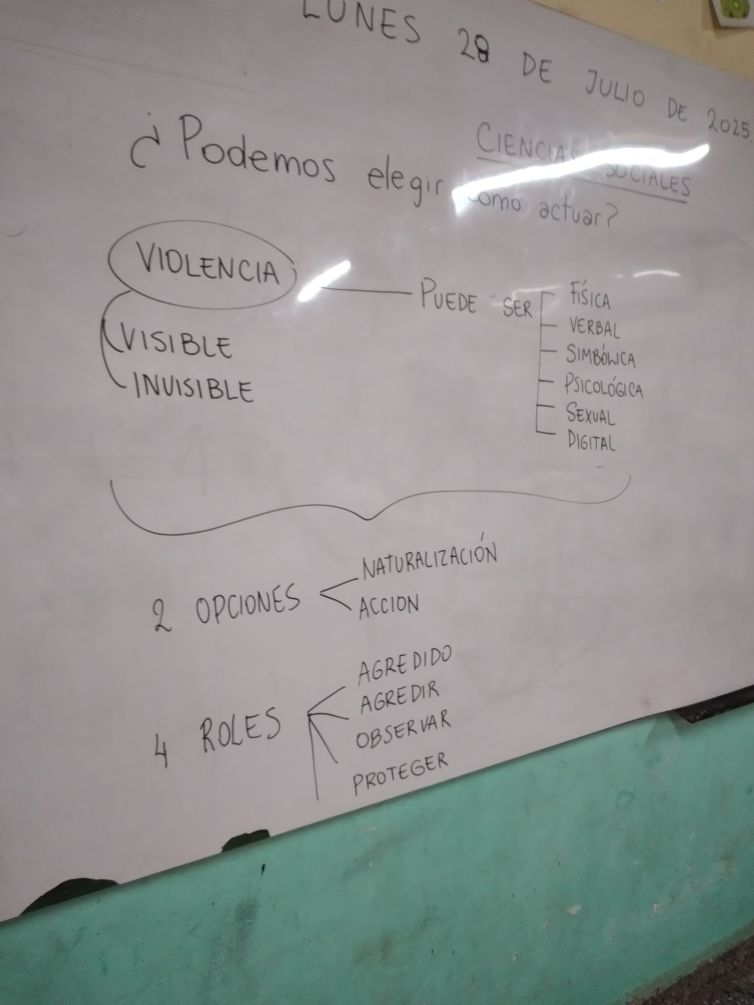 LUNES 28 DE JULIO DE 2025.
CIENCIAS SOCIALES
¿Podemos elegir como actuar?
VIOLENCIA
VISIBLE
INVISIBLE
PUEDE SER
FÍSICA
VERBAL
SIMBÓLICA
PSICOLÓGICA
SEXUAL
DIGITAL
2 OPCIONES
NATURALIZACIÓN
ACCION
4 ROLES
AGREDIDO
AGREDIR
OBSERVAR
PROTEGER